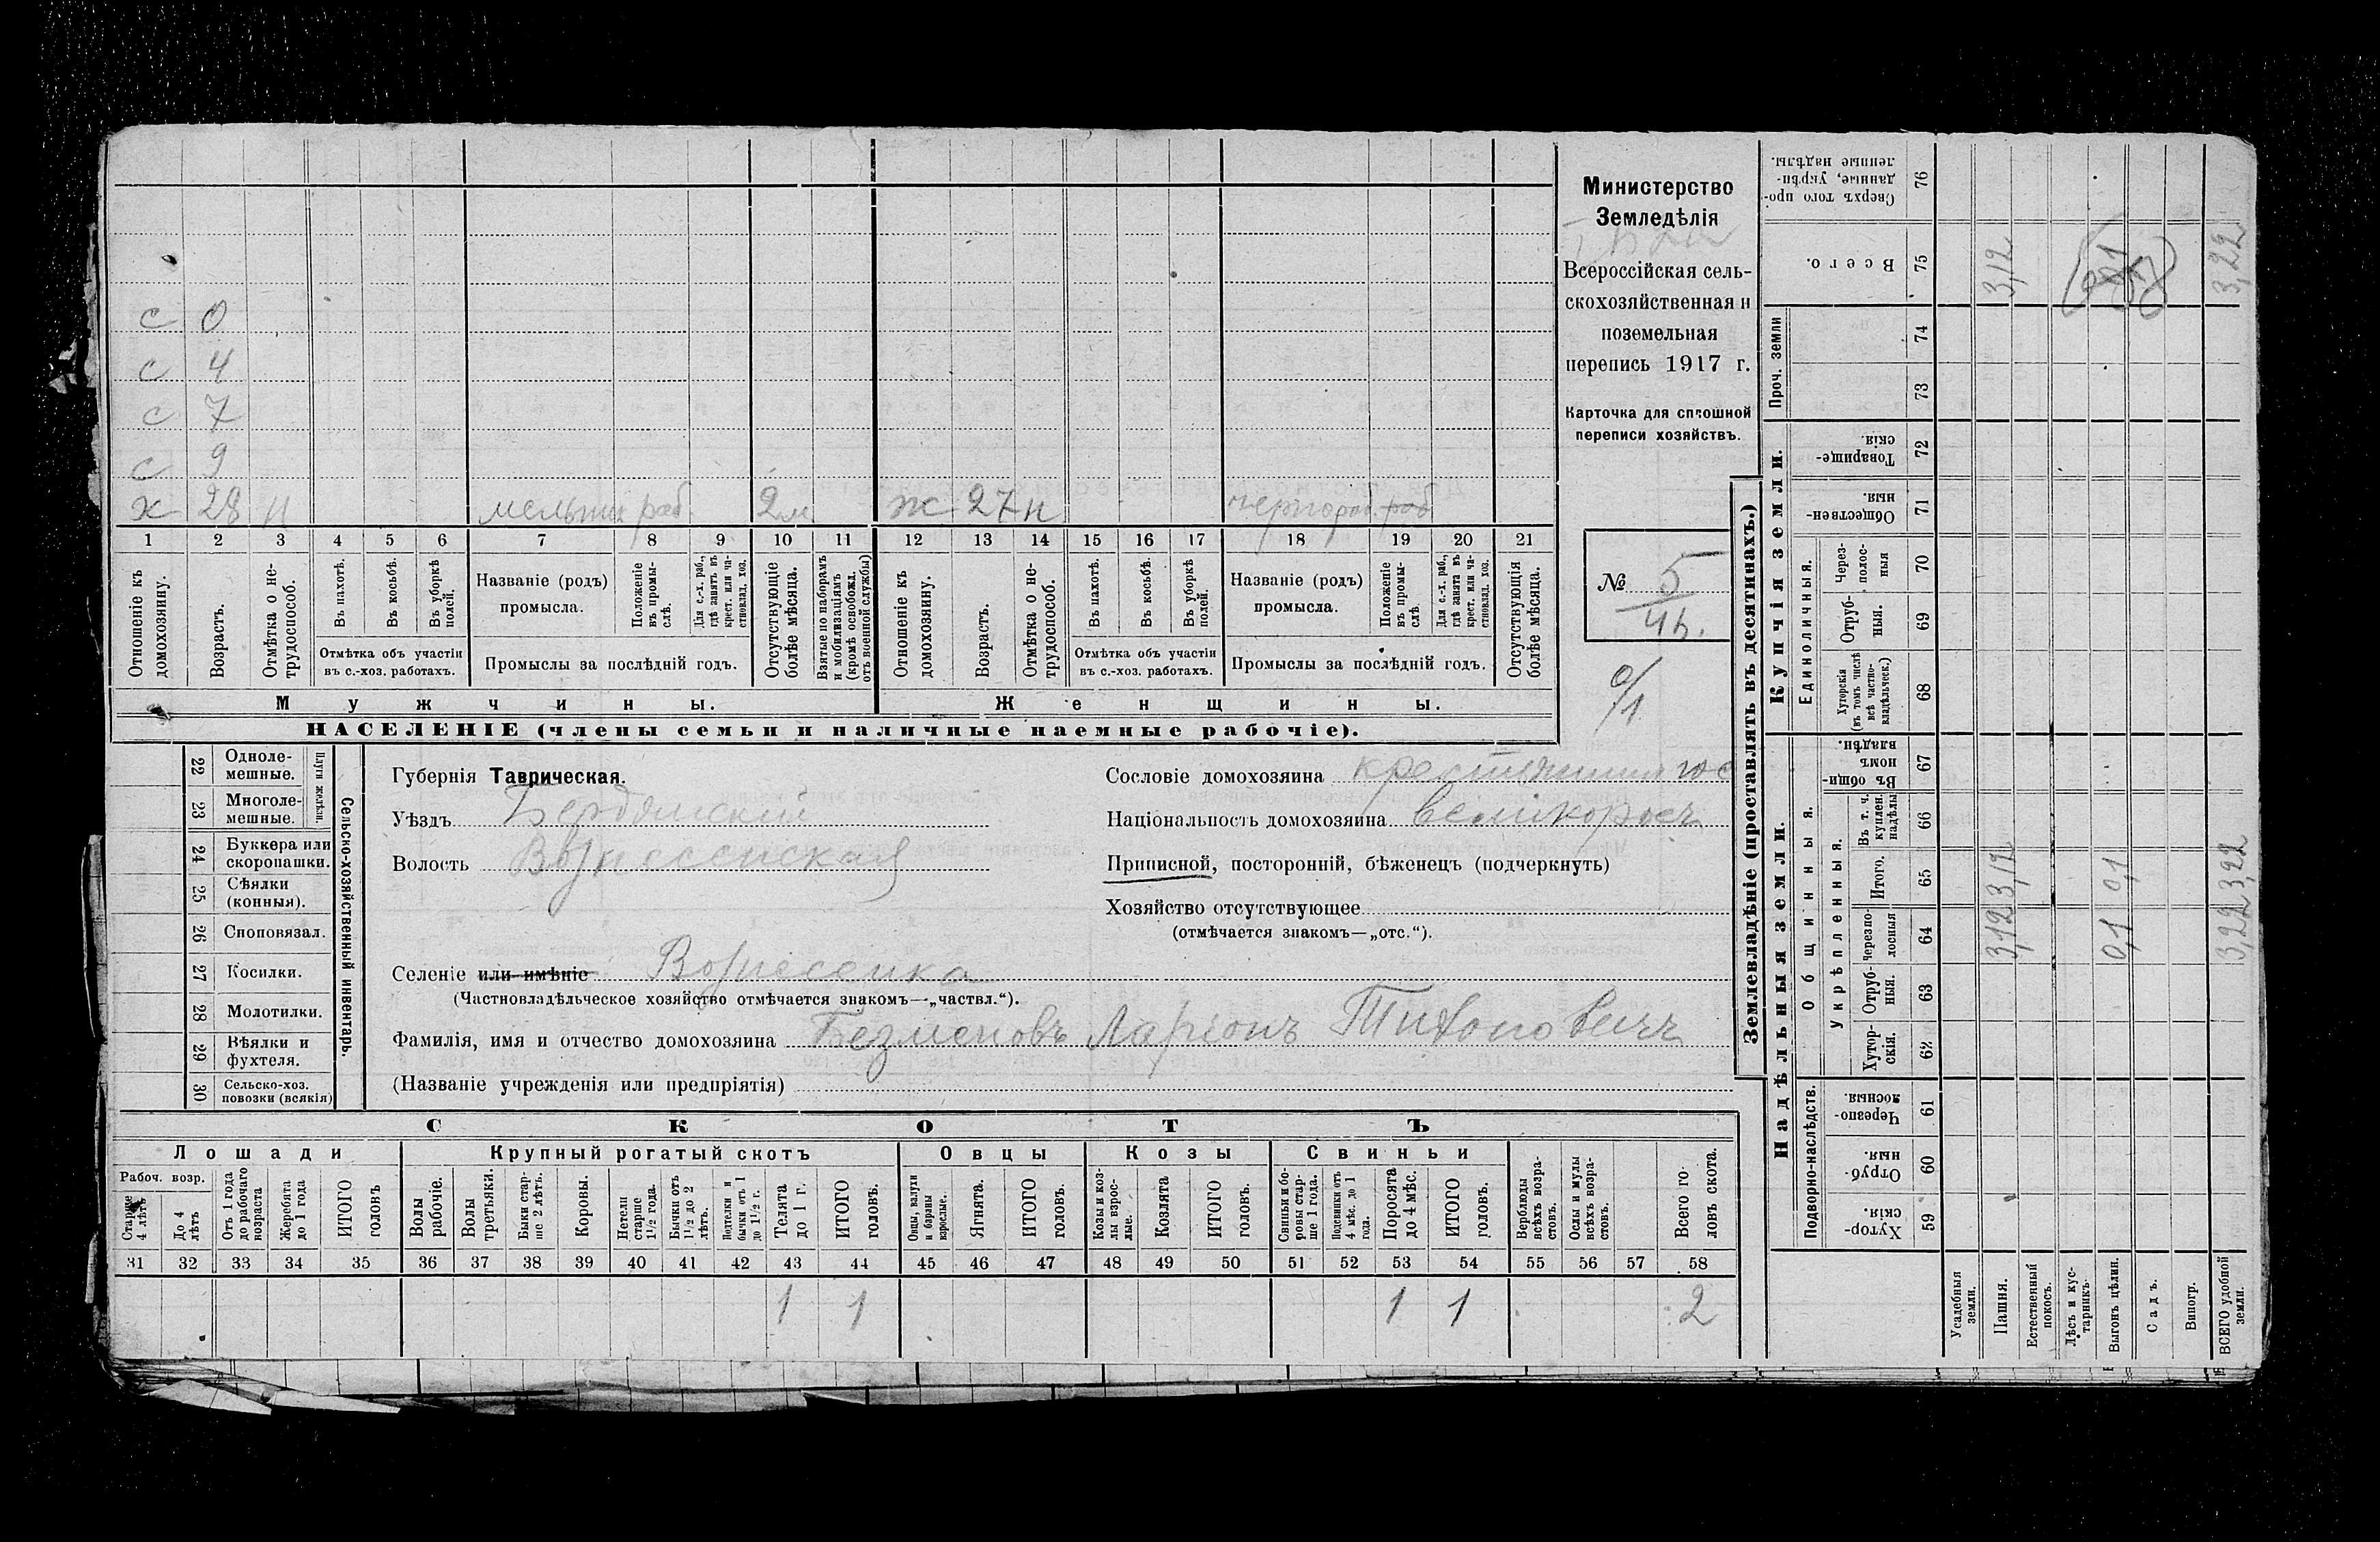 Министерство
Земледѣлія
Всероссійская сель-
скохозяйственная и
поземельная
перепись 1917 г.
Карточка для сплошной
переписи хозяйствъ.
№ 5
0/1
с 0
с 4
с 7
с 9
х 28 н мельник раб 2м ж 27 н чернораб. раб
1 2 3 4 5 6 7 8 9 10 11 12 13 14 15 16 17 18 19 20 21
Отношеніе къ домохозяину.
Возрастъ.
Отмѣтка о не-трудоспособ.
Въ пахотѣ.
Въ косьбѣ.
Въ уборкѣ полей.
Отмѣтка объ участіи
въ с.-хоз. работахъ.
Названіе (родъ)
промысла.
Положеніе въ промы-слѣ.
Для с.-х. раб., гдѣ занятъ въ крест. или ча-стновлад. хоз.
Промыслы за послѣдній годъ.
Отсутствующіе болѣе мѣсяца.
Взятые по наборамъ и мобилизаціямъ (кромѣ освобожд. отъ военной службы)
Отношеніе къ домохозяину.
Возрастъ.
Отмѣтка о не-трудоспособ.
Въ пахотѣ.
Въ косьбѣ.
Въ уборкѣ полей.
Отмѣтка объ участіи
въ с.-хоз. работахъ.
Названіе (родъ)
промысла.
Положеніе въ промы-слѣ.
Для с.-х. раб., гдѣ занята въ крест. или ча-стновлад. хоз.
Промыслы за послѣдній годъ.
Отсутствующія болѣе мѣсяца.
Мужчины.
Женщины.
НАСЕЛЕНІЕ (члены семьи и наличные наемные рабочіе).
22 Одноле-мешные.
23 Многоле-мешные.
Плуги желѣзн.
24 Буккера или скоропашки.
25 Сѣялки (конныя).
26 Сноповязал.
27 Косилки.
28 Молотилки.
29 Вѣялки и фухтеля.
30 Сельско-хоз. повозки (всякія)
Сельско-хозяйственный инвентарь.
Губернія Таврическая.
Уѣздъ Бердянскій
Волость Вознесенская
Сословіе домохозяина
Національность домохозяина великороссъ
Приписной, посторонній, бѣженецъ (подчеркнуть)
Хозяйство отсутствующее
(отмѣчается знакомъ—„отс.“).
Селеніе или имѣніе Вознесенка
(Частновладѣльческое хозяйство отмѣчается знакомъ—„частвл.“).
Фамилія, имя и отчество домохозяина Безменовъ Ларіонъ Тихоновичъ
(Названіе учрежденія или предпріятія)
СКОТЪ
Лошади
Крупный рогатый скотъ
Овцы
Козы
Свиньи
Рабоч. возр.
Старше 4 лѣтъ
До 4 лѣтъ
Отъ 1 года до рабочаго возраста
Жеребята до 1 года
ИТОГО головъ
Волы рабочіе.
Волы третьяки.
Быки стар-ше 2 лѣтъ.
Коровы.
Нетели старше 1 1/2 года.
Бычки отъ 1 1/2 до 2 лѣтъ.
Подтелки и бычки отъ 1 до 1 1/2 г.
Телята до 1 г.
ИТОГО головъ.
Овцы, валухи и бараны взрослые.
Ягнята.
ИТОГО головъ.
Козы и коз-лы взрос-лые.
Козлята
ИТОГО головъ.
Свиньи и бо-ровы стар-ше 1 года.
Подсвинки отъ 4 мѣс. до 1 года.
Поросята до 4 мѣс.
ИТОГО головъ.
Верблюды всѣхъ возра-стовъ.
Ослы и мулы всѣхъ возра-стовъ.
Всего го-ловъ скота.
31 32 33 34 35 36 37 38 39 40 41 42 43 44 45 46 47 48 49 50 51 52 53 54 55 56 57 58
1 1 1 1 2
Землевладѣніе (проставлять въ десятинахъ.)
Надѣльныя земли.
Купчія земли.
Проч. земли
Сверхъ того про-данные, укрѣп-ленные надѣлы. 76
Всего. 75
74
73
Товарище-скія. 72
Обществен-ныя. 71
Единоличныя.
Через-полос-ныя 70
Отруб-ныя. 69
Хуторскія (въ томъ числѣ всѣ частно-владѣльческ.) 68
Общинныя.
Въ общин-номъ владѣн. 67
Укрѣпленныя.
Въ т. ч. куплен. надѣлы 66
Итого. 65
Черезпо-лосныя 64
Отруб-ныя. 63
Хутор-скія. 62
Подворно-наслѣдств.
Черезпо-лосныя. 61
Отруб-ныя. 60
Хутор-скія. 59
Усадебныя земли.
Пашня. 3,12 3,12 3,12
Естественный покосъ.
Лѣсъ и кус-тарникъ.
Выгонъ цѣлин. 0,1 0,1
Садъ.
Виногр.
ВСЕГО удобной земли. 3,22 3,22 3,22